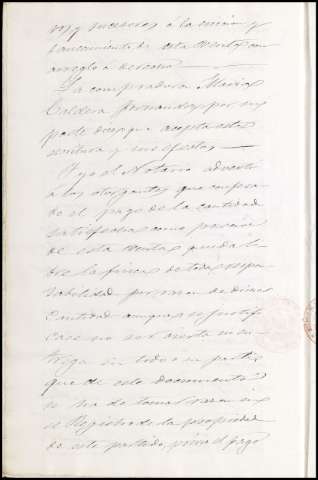 res y sucesores á la eviccion y
saneamiento de esta venta con
arreglo á derecho
La compradora Maria
Caldera Fernandez por su
parte dice que acepta esta
escritura y sus efectos
Y yo el Notario advertí
á los otorgantes que confesa-
do el pago de la cantidad
satisfecha como precio
de esta venta queda li-
bre la finca de toda respon-
sabilidad por razon de dicha
cantidad aunque se justifi-
case no ser cierta su en-
trega en todo ó en parte
que de este documento
se ha de tomar razon en
el Registro de la propiedad
de este partido, previo el pago